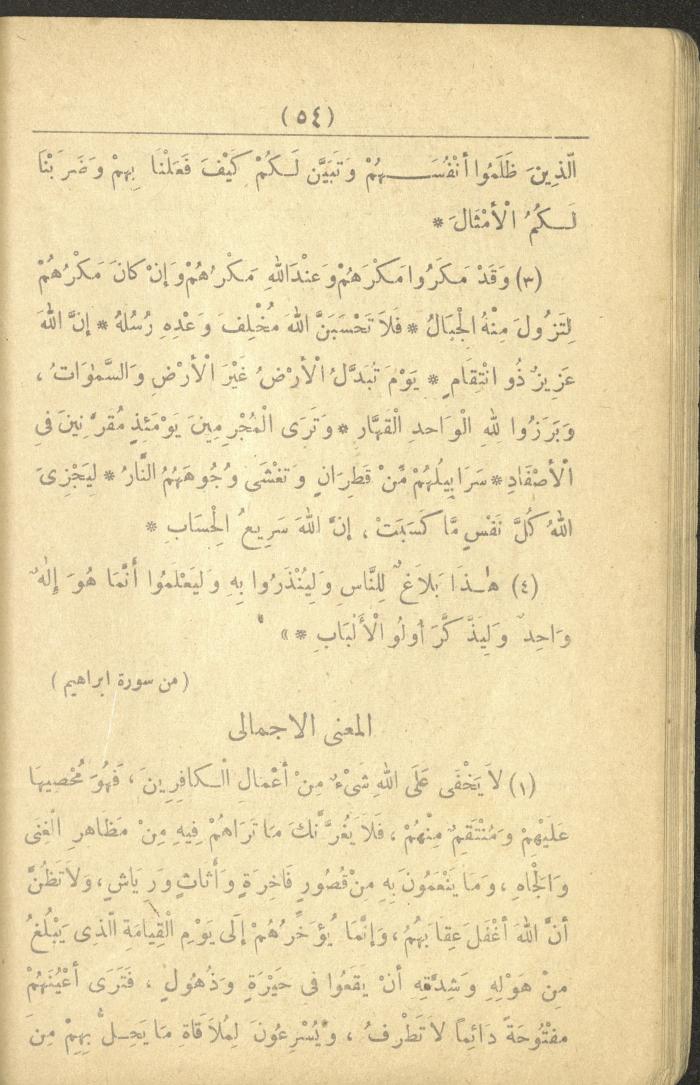 (٥٤)
الَّذِينَ ظَلَمُوا أَنْفُسَهُمْ وَتَبَيَّنَ لَكُمْ كَيْفَ فَعَلْنَا بِهِمْ وَضَرَبْنَا
لَكُمُ الْأَمْثَالَ *
(٣) وَقَدْ مَكَرُوا مَكْرَهُمْ وَعِنْدَ اللهِ مَكْرُهُمْ وَإِنْ كَانَ مَكْرُهُمْ
لِتَزُولَ مِنْهُ الْجِبَالُ * فَلاَ تَحْسَبَنَّ اللهَ مُخْلِفَ وَعْدِهِ رُسُلَهُ * إِنَّ اللهَ
عَزِيزٌ ذُو انْتِقَامٍ * يَوْمَ تُبَدَّلُ الْأَرْضُ غَيْرَ الْأَرْضِ وَالسَّمٰوَاتُ ،
وَبَرَزُوا لِلهِ الْوَاحِدِ الْقَهَّارِ * وَتَرَى الْمُجْرِمِينَ يَوْمَئِذٍ مُقَرَّنِينَ فِي
الْأَصْفَادِ * سَرَابِيلُهُمْ مِّنْ قَطِرَانٍ وَتَغْشَى وُجُوهَهُمُ النَّارُ * لِيَجْزِىَ
اللهُ كُلَّ نَفْسٍ مَّا كَسَبَتْ ، إِنَّ اللهَ سَرِيعُ الْحِسَابِ *
(٤) هٰذَا بَلاَغٌ لِلنَّاسِ وَلِيُنْذَرُوا بِهِ وَلِيَعْلَمُوا أَنَّمَا هُوَ إِلٰهٌ
وَاحِدٌ وَلِيَذَّكَّرَ أُولُو الْأَلْبَابِ * »
(من سورة ابراهيم)
المعنى الاجمالى
(١) لاَ يَخْفَى عَلَى اللهِ شَىْءٌ مِنْ أَعْمَالِ الْكَافِرِينَ ، فَهُوَ مُحْصِيهَا
عَلَيْهِمْ وَمُنْتَقِمٌ مِنْهُمْ ، فَلاَ يَغُرَّنَّكَ مَا تَرَاهُمْ فِيهِ مِنْ مَظَاهِرِ الْغِنَى
وَالْجَاهِ ، وَمَا يَنْعَمُونَ بِهِ مِنْ قُصُورٍ فَاخِرَةٍ وَأَثَاثٍ وَرِيَاشٍ ، وَلاَ تَظُنَّ
أَنَّ اللهَ أَغْفَلَ عِقَابَهُمْ ، وَإِنَّمَا يُؤَخِّرُهُمْ إِلَى يَوْمِ الْقِيَامَةِ الَّذِى يَبْلُغُ
مِنْ هَوْلِهِ وَشِدَّتِهِ أَنْ يَقَعُوا فِى حَيْرَةٍ وَذُهُولٍ ، فَتَرَى أَعْيُنَهُمْ
مَفْتُوحَةً دَائِماً لاَ تَطْرِفُ ، وَيُسْرِعُونَ لِمُلاَقَاةِ مَا يَحِلُّ بِهِمْ مِنَ